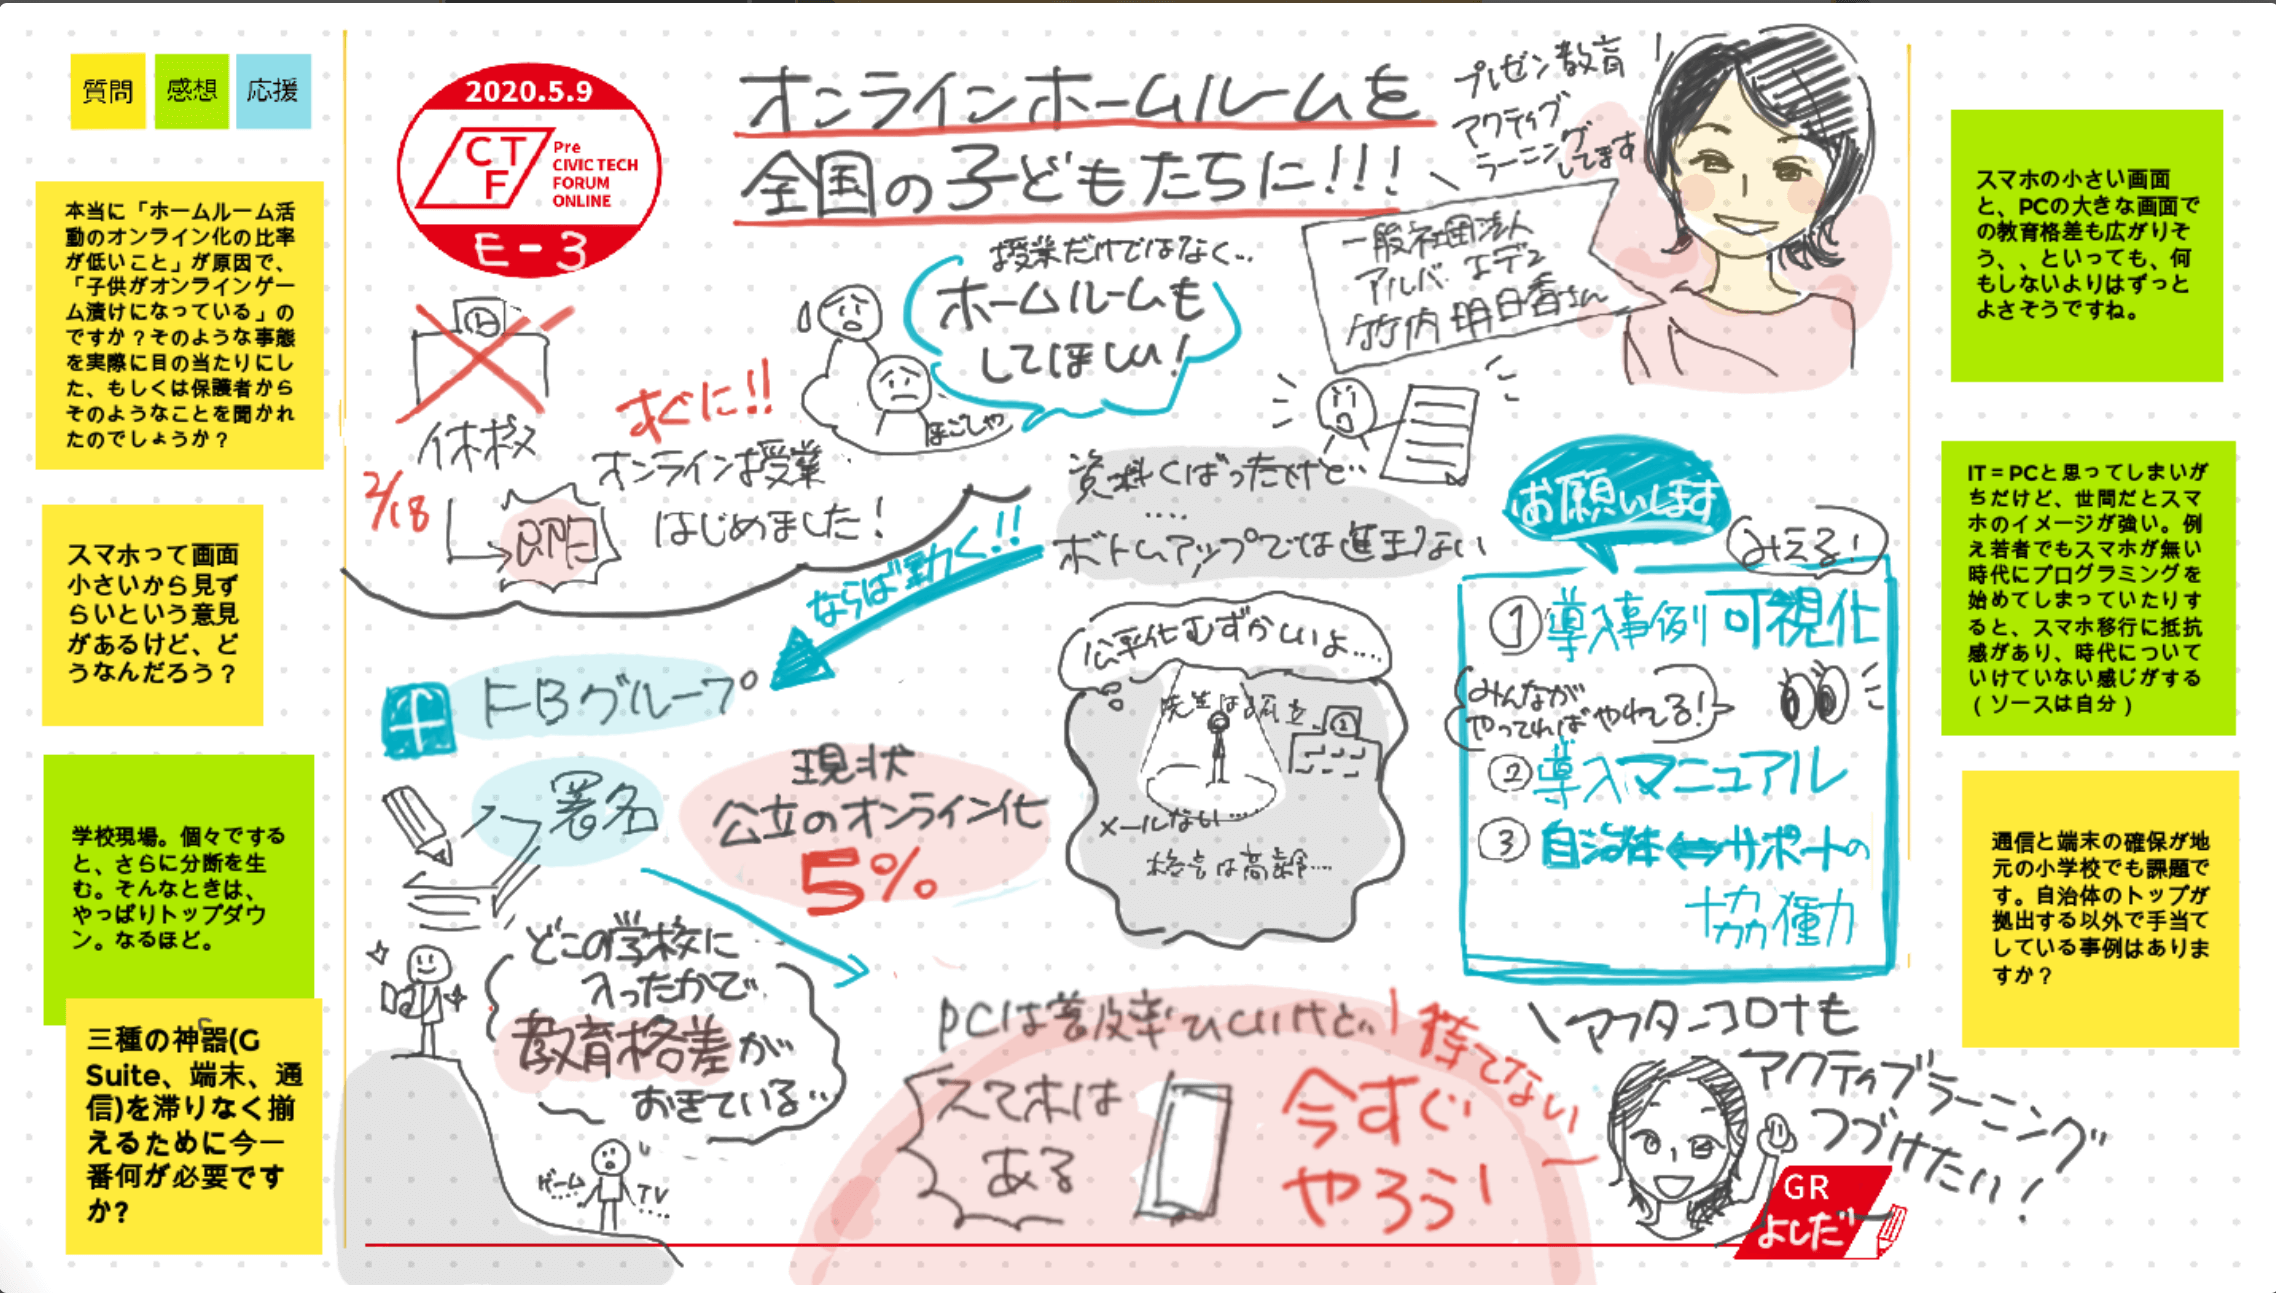 質問
感想
応援
本当に「ホームルーム活
動のオンライン化の比率
が低いこと」が原因で、
「子供がオンラインゲー
ム漬けになっている」の
ですか？そのような事態
を実際に目の当たりにし
た、もしくは保護者から
そのようなことを聞かれ
たのでしょうか？
スマホって画面
小さいから見ず
らいという意見
があるけど、ど
うなんだろう？
学校現場。個々でする
と、さらに分断を生
む。そんなときは、
やっぱりトップダウ
ン。なるほど。
三種の神器(G
Suite、端末、通
信)を滞りなく揃
えるために今一
番何が必要です
か?
2020.5.9
CTF
Pre
CIVIC TECH
FORUM
ONLINE
E-3
オンラインホームルームを
全国の子どもたちに!!!
プレゼン教育
アクティブ
ラーニング
してます
一般社団法人
アルバ・エデュ
竹内明日香さん
授業だけではなく…
ホームルームも
してほしい!
ほごしゃ
休校
すぐに!!
2/18
即日
オンライン授業
はじめました!
資料くばったけど…
ボトムアップでは進まない
ならば動く!!
FBグループ
署名
現状
公立のオンライン化
5%
公平化むずかしいよ…
先生は孤立
メールない…
校長は高齢…
お願いします
みえる!
① 導入事例 可視化
みんなが
やってればやれる!
② 導入マニュアル
③ 自治体⇔サポートの
協働
どこの学校に
入ったかで
教育格差が
おきている…
ゲーム…
TV…
PCは普及率ひくいけど…
スマホは
ある
待てない
今すぐ
やろう!
アフターコロナも
アクティブラーニング
つづけたい!
GR
よしだ
スマホの小さい画面
と、PCの大きな画面で
の教育格差も広がりそ
う、、といっても、何
もしないよりはずっと
よさそうですね。
IT＝PCと思ってしまいが
ちだけど、世間だとスマ
ホのイメージが強い。例
え若者でもスマホが無い
時代にプログラミングを
始めてしまっていたりす
ると、スマホ移行に抵抗
感があり、時代について
いけていない感じがする
（ソースは自分）
通信と端末の確保が地
元の小学校でも課題で
す。自治体のトップが
拠出する以外で手当て
している事例はありま
すか？